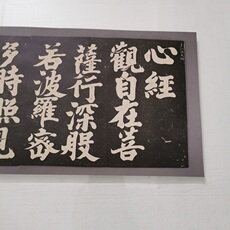 心經
觀自在菩
薩行深般
若波羅蜜
多時照見